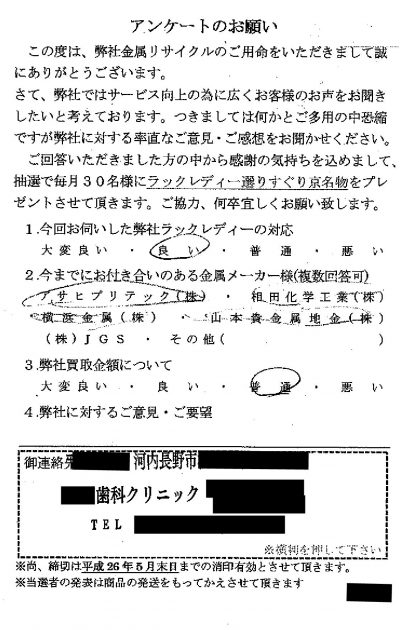 アンケートのお願い
この度は、弊社金属リサイクルのご用命をいただきまして誠
にありがとうございます。
さて、弊社ではサービス向上の為に広くお客様のお声をお聞き
したいと考えております。つきましては何かとご多用の中恐縮
ですが弊社に対する率直なご意見・ご感想をお聞かせください。
ご回答いただきました方の中から感謝の気持ちを込めまして、
抽選で毎月３０名様にラックレディー選りすぐり京名物をプレ
ゼントさせて頂きます。ご協力、何卒宜しくお願い致します。
１.今回お伺いした弊社ラックレディーの対応
大変良い ・ 良い ・ 普通 ・ 悪い
２.今までにお付き合いのある金属メーカー様(複数回答可)
アサヒプリテック(株) ・ 相田化学工業(株)
・横浜金属(株) ・ 山本貴金属地金(株)
(株)ＪＧＳ ・ その他( )
３.弊社買取金額について
大変良い ・ 良い ・ 普通 ・ 悪い
４.弊社に対するご意見・ご要望
御連絡先
河内長野市
歯科クリニック
ＴＥＬ
※横判を押して下さい
※尚、締切は平成２６年５月末日までの消印有効とさせて頂きます。
※当選者の発表は商品の発送をもってかえさせて頂きます